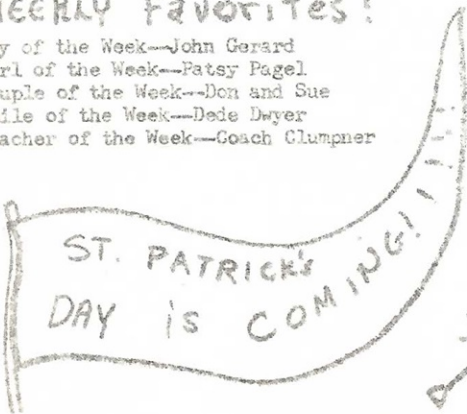 WEEKLY FAVORITES!
y of the Week--John Gerard
rl of the Week--Patsy Pagel
uple of the Week--Don and Sue
ile of the Week--Dede Dwyer
acher of the Week--Coach Clumpner
ST. PATRICK'S
DAY is COMING!!!